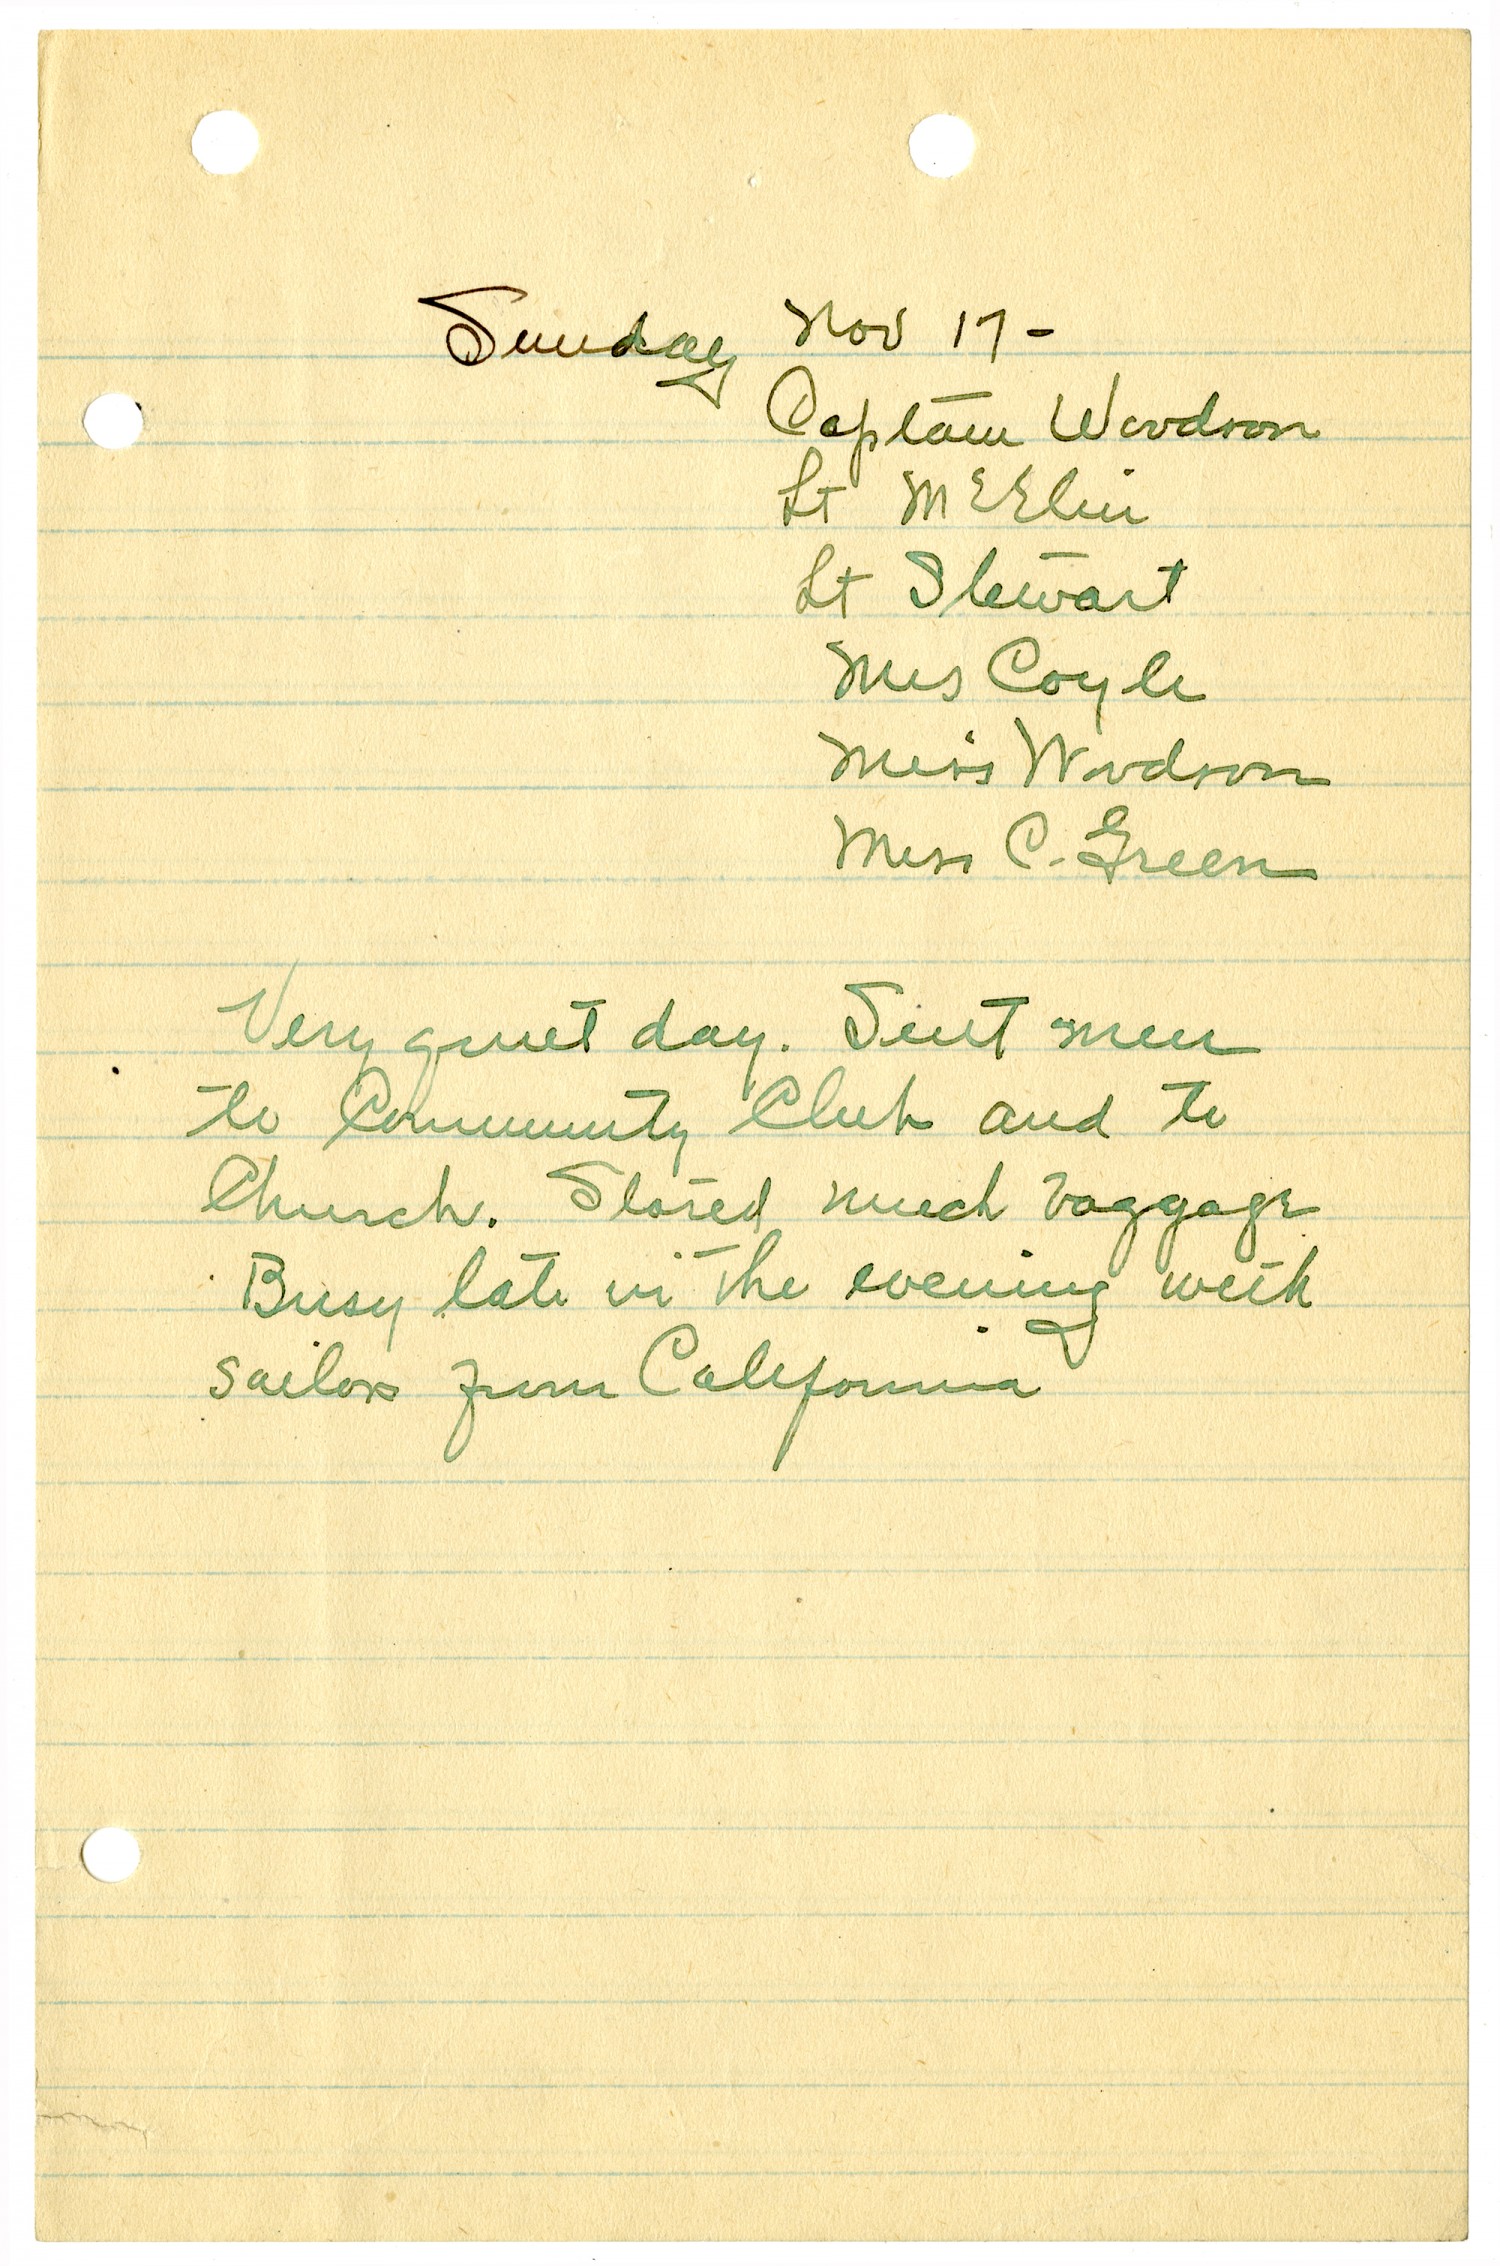 Sunday Nov 17-
Captain Woodson
Lt McElin
Lt Stewart
Mrs Coyle
Miss Woodson
Miss C. Green
Very quiet day. Sent men
to Community Club and to
Church. Stored much baggage
Busy late in the evening with
sailors from California